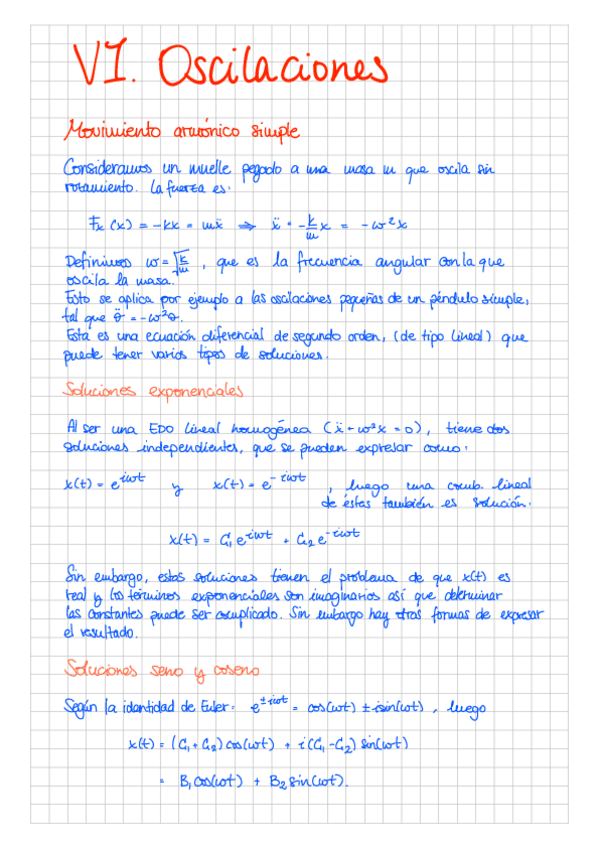 VI. Oscilaciones
Movimiento armónico simple
Consideramos un muelle pegado a una masa m que oscila sin
rozamiento. La fuerza es:
Fx (x) = -kx = mẍ ⇒ ẍ = -k/m x = -ω²x
Definimos ω = √k/m , que es la frecuencia angular con la que
oscila la masa.
Esto se aplica por ejemplo a las oscilaciones pequeñas de un péndulo simple,
tal que σ̈ = -ω²σ.
Esta es una ecuación diferencial de segundo orden, (de tipo lineal) que
puede tener varios tipos de soluciones.
Soluciones exponenciales
Al ser una EDO lineal homogénea (ẍ + ω²x = 0), tiene dos
soluciones independientes, que se pueden expresar como:
x(t) = e^iωt y x(t) = e^-iωt , luego una comb. lineal
de éstas también es solución.
x(t) = C₁e^iωt + C₂e^-iωt
Sin embargo, estas soluciones tienen el problema de que x(t) es
real y los términos exponenciales son imaginarios así que determinar
las constantes puede ser complicado. Sin embargo hay otras formas de expresar
el resultado.
Soluciones seno y coseno
Según la identidad de Euler: e^±iωt = cos(ωt) ± isin(ωt) , luego
x(t) = (C₁ + C₂) cos(ωt) + i(C₁ - C₂) sin(ωt)
= B₁ cos(ωt) + B₂ sin(ωt).